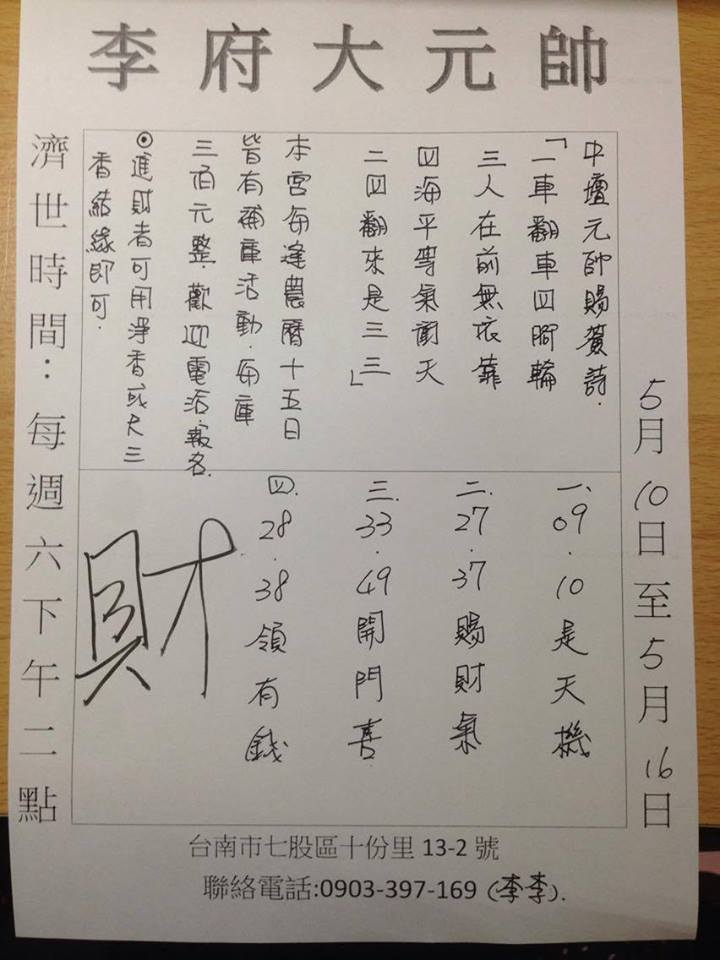 李府大元帥
5月10日至5月16日
中壇元帥賜贊詩.
「一車翻車四腳輪
三人在前無依靠
四海平等氣謝天
二四翻來是三三」
本宮每逢農曆十五日
皆有補庫活動.每庫
三佰元整.歡迎電活報名.
◎進財者可用淨香或尺三
香結緣即可.
一、09.10是天機
二.27.37賜財氣
三.33.49開門喜
四.28.38領有錢
財
濟世時間:每週六下午二點
台南市七股區十份里 13-2 號
聯絡電話:0903-397-169 (李李).